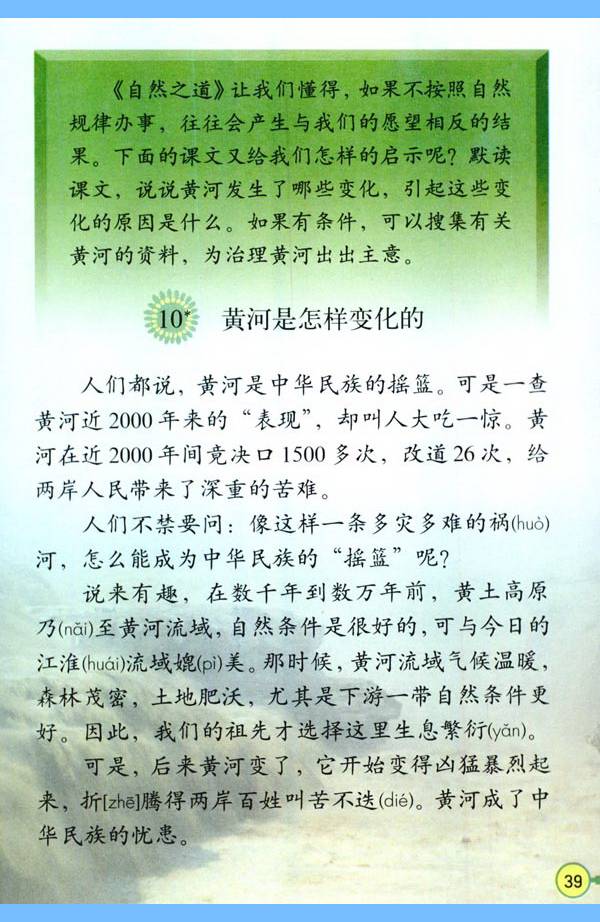 《自然之道》让我们懂得，如果不按照自然
规律办事，往往会产生与我们的愿望相反的结
果。下面的课文又给我们怎样的启示呢？默读
课文，说说黄河发生了哪些变化，引起这些变
化的原因是什么。如果有条件，可以搜集有关
黄河的资料，为治理黄河出出主意。
10* 黄河是怎样变化的
人们都说，黄河是中华民族的摇篮。可是一查
黄河近2000年来的“表现”，却叫人大吃一惊。黄
河在近2000年间竟决口1500多次，改道26次，给
两岸人民带来了深重的苦难。
人们不禁要问：像这样一条多灾多难的祸(huò)
河，怎么能成为中华民族的“摇篮”呢？
说来有趣，在数千年到数万年前，黄土高原
乃(nǎi)至黄河流域，自然条件是很好的，可与今日的
江淮(huái)流域媲(pì)美。那时候，黄河流域气候温暖，
森林茂密，土地肥沃，尤其是下游一带自然条件更
好。因此，我们的祖先才选择这里生息繁衍(yǎn)。
可是，后来黄河变了，它开始变得凶猛暴烈起
来，折[zhē]腾得两岸百姓叫苦不迭(dié)。黄河成了中
华民族的忧患。
39